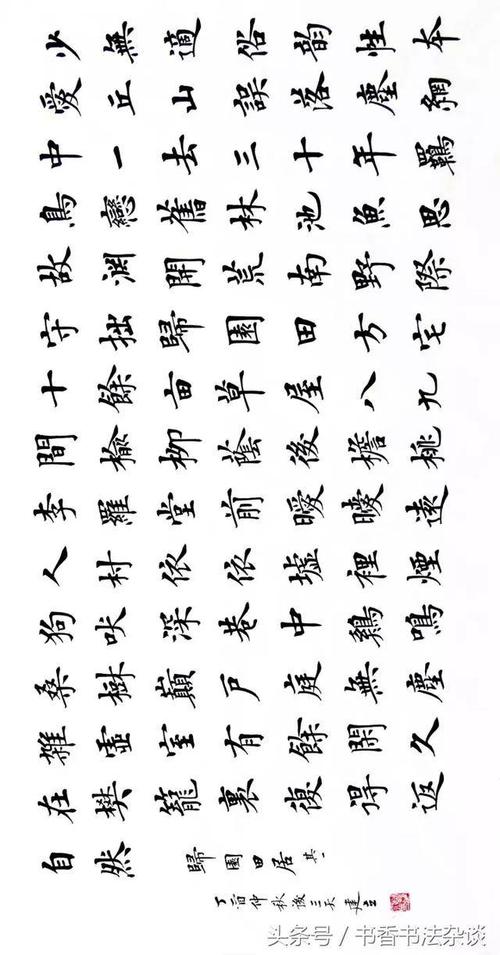 少無適俗韻性本
愛丘山誤落塵網
中一去三十年羈
鳥戀舊林池魚思
故淵開荒南野際
守拙歸園田方宅
十餘亩草屋八九
間榆柳蔭後檐桃
李羅堂前曖曖遠
人村依依墟裡煙
狗吠深巷中鷄鳴
桑樹巔戶庭無塵
雜虛室有餘閑久
在樊籠裏復得返
自然
歸園田居其
丁酉仲秋後三天建
头条号/书香书法杂谈